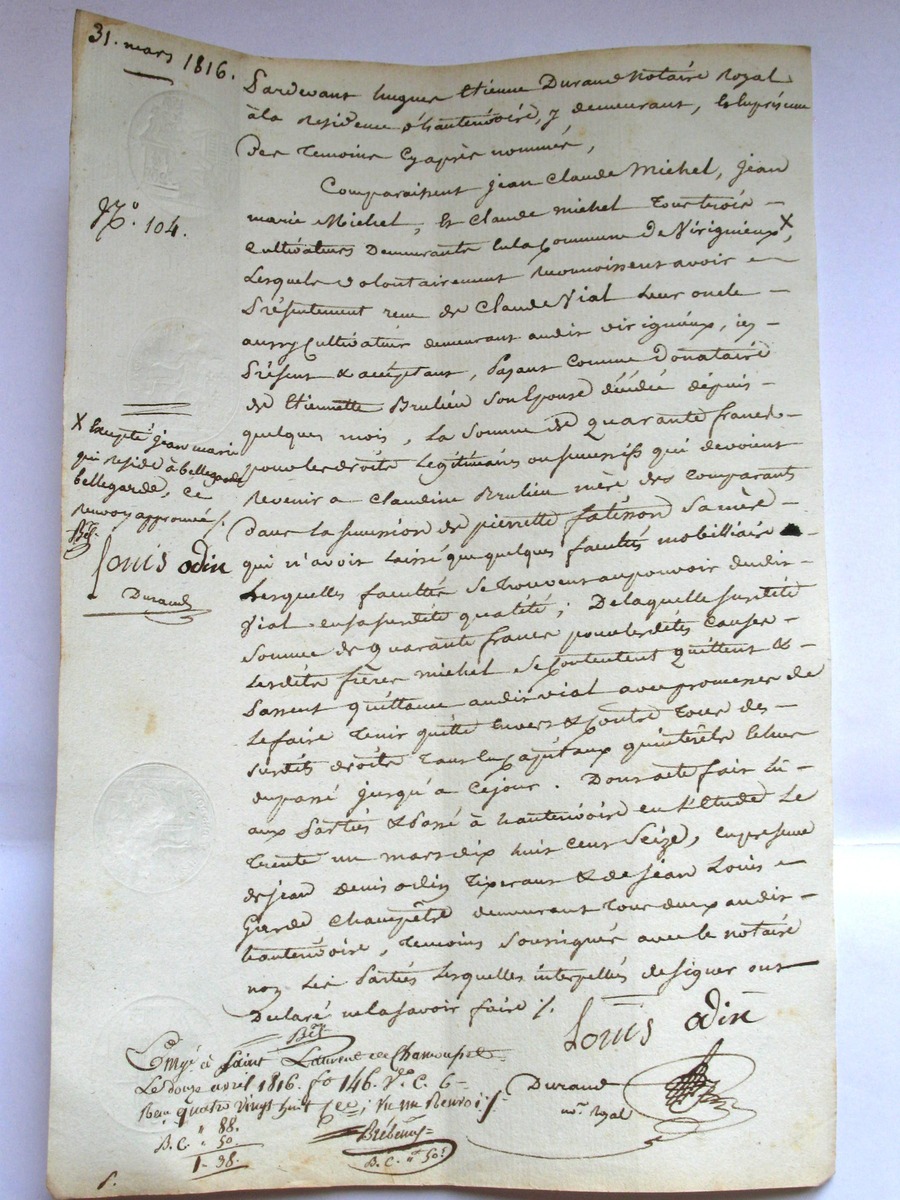 31. mars 1816.
Pardevant hugues Etienne Durand Notaire Royal
à la residence d'hauterivoire, y demeurant, En presence
Des temoins Cy après nommés,
Comparaissent jean Claude Michel, jean
N.o 104.
marie Michel, Et Claude michel tous trois
Cultivateurs Demeurants En la Commune de Virigneux X,
Lesquels volontairement Reconnoissent avoir
Présentement recu de Claude Vial Leur oncle
aussy Cultivateur demeurant audit virigneux, icy
Présent & acceptant, Payant comme Donataire
de Etiennette Brulieu son Epouse décédée dépuis
quelques mois, La Somme de quarante francs
pour les droits Legitimaires ou successifs qui devoient
Revenir a Claudine Brulieu mère des comparants
Dans la succession de pierrette fatisson Sa mère
qui n'avoit laissé que quelques facultés mobilliaire
Lesquelles facultés se trouvent au pouvoir dudit
Vial en sa susdite qualité; De laquelle susdite
Somme de quarante francs pour lesdites causes
Lesdits frères michel se Contentent quittent &
Passent quittance audit vial avec promesses de
Le faire tenir quitte Envers & Contre tous des
susdits droits tant En Capitaux qu'interêts Echus
du passé jusqu'à Cejour. Dont acte fait Lu
aux Parties & Passé à hauterivoire en L'Etude Le
trente un mars dix huit cent Seize, En presence
de jean denis odin tixerant & de jean Louis
Garde Champêtre demeurant tous deux audit
hauterivoire, temoins soussignés avec le notaire
non Les Parties Lesquelles interpellés de signer ont
Declaré ne la savoir faire ./.
X Excepté jean marie
qui reside à bellegarde
bellegarde, ce
renvoy approuvé ./.
Louis odin
Durand
Louis odin
Durand
no.re Royal
Enrgé à Saint Laurent de Chamousset
Le douze avril 1816. fo 146. Vo. C. 6
Reçu quatre vingt huit Ces; Vu un Renvoi ./.
" 88.
B.C. " 50.
1 - 38.
B.C. " 50.